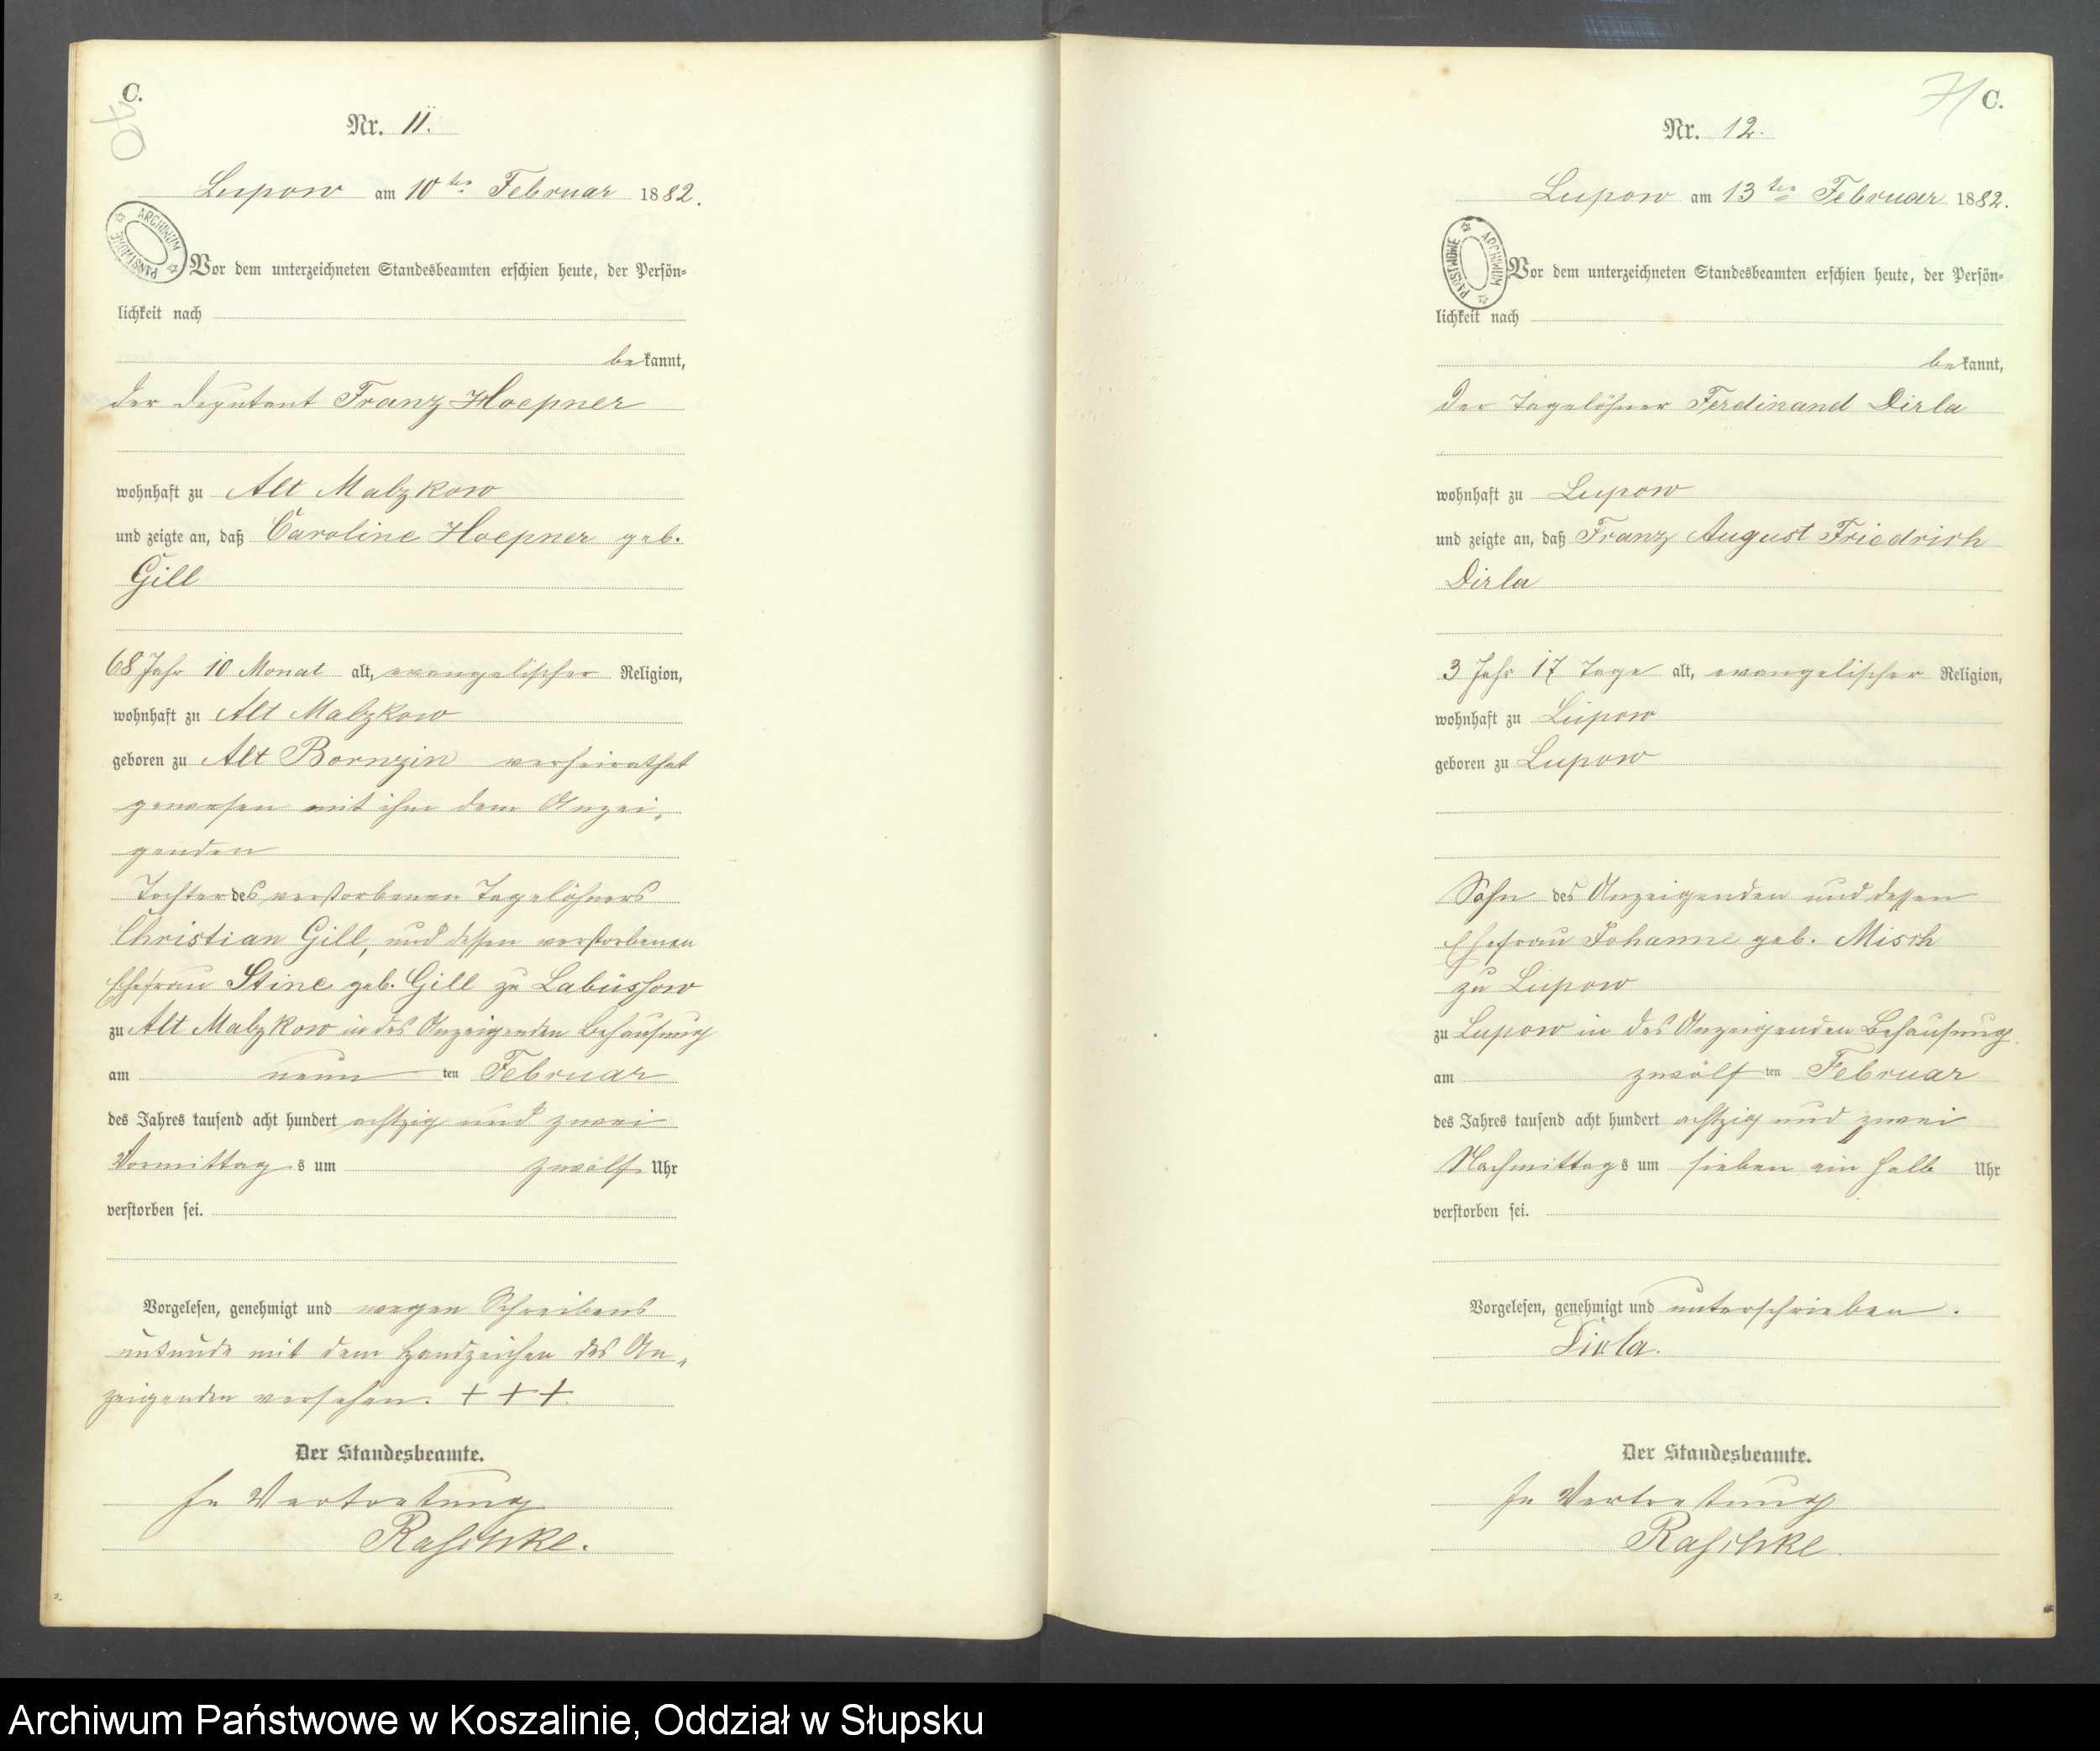 C.
70
Nr. 11.
Lupow am 10ten Februar 1882.
ARCHIWUM PAŃSTWOWE
Vor dem unterzeichneten Standesbeamten erschien heute, der Persön=
lichkeit nach
bekannt,
der Deputant Franz Hoepner
wohnhaft zu Alt Malzkow
und zeigte an, daß Caroline Hoepner geb.
Gill
68 Jahr 10 Monat alt, evangelischer Religion,
wohnhaft zu Alt Malzkow
geboren zu Alt Bornzin verheirathet
gewesen mit ihm dem Anzei„
genden
Tochter des verstorbenen Tagelöhners
Christian Gill, und dessen verstorbenen
Ehefrau Stine geb. Gill zu Labüssow
zu Alt Malzkow in des Anzeigenden Behausung
am neun ten Februar
des Jahres tausend acht hundert achtzig und zwei
Vormittags um zwölf Uhr
verstorben sei.
Vorgelesen, genehmigt und wegen Schreibens
unkunde mit dem Handzeichen des An„
zeigenden versehen. + + +.
Der Standesbeamte.
In Vertretung
Raschke.
71
C.
Nr. 12.
Lupow am 13ten Februar 1882.
ARCHIWUM PAŃSTWOWE
Vor dem unterzeichneten Standesbeamten erschien heute, der Persön=
lichkeit nach
bekannt,
der Tagelöhner Ferdinand Dirla
wohnhaft zu Lupow
und zeigte an, daß Franz August Friedrich
Dirla
3 Jahr 17 Tage alt, evangelischer Religion,
wohnhaft zu Lupow
geboren zu Lupow
Sohn des Anzeigenden und dessen
Ehefrau Johanne geb. Misch
zu Lupow
zu Lupow in des Anzeigenden Behausung
am zwölf ten Februar
des Jahres tausend acht hundert achtzig und zwei
Nachmittags um sieben ein halb Uhr
verstorben sei.
Vorgelesen, genehmigt und unterschrieben.
Dirla.
Der Standesbeamte.
In Vertretung
Raschke.
Archiwum Państwowe w Koszalinie, Oddział w Słupsku